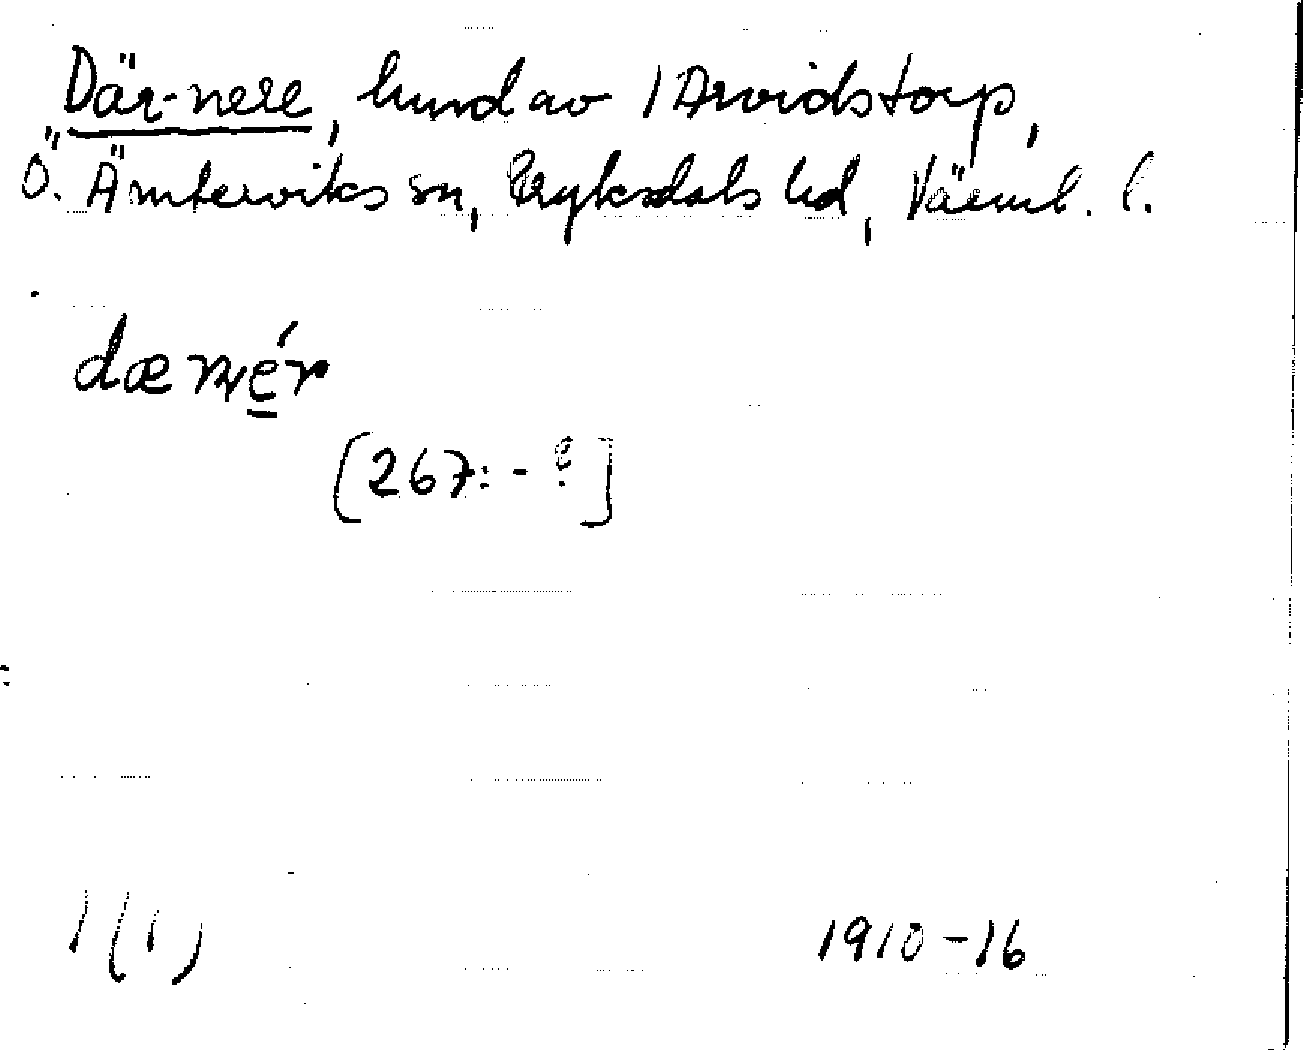 Där-nere, hmd av 1 Arvidstorp,
Ö. Ämterviks sn, Fryksdals hd, Värml. l.
dænér
[267: - e]
1(1)
1910-16